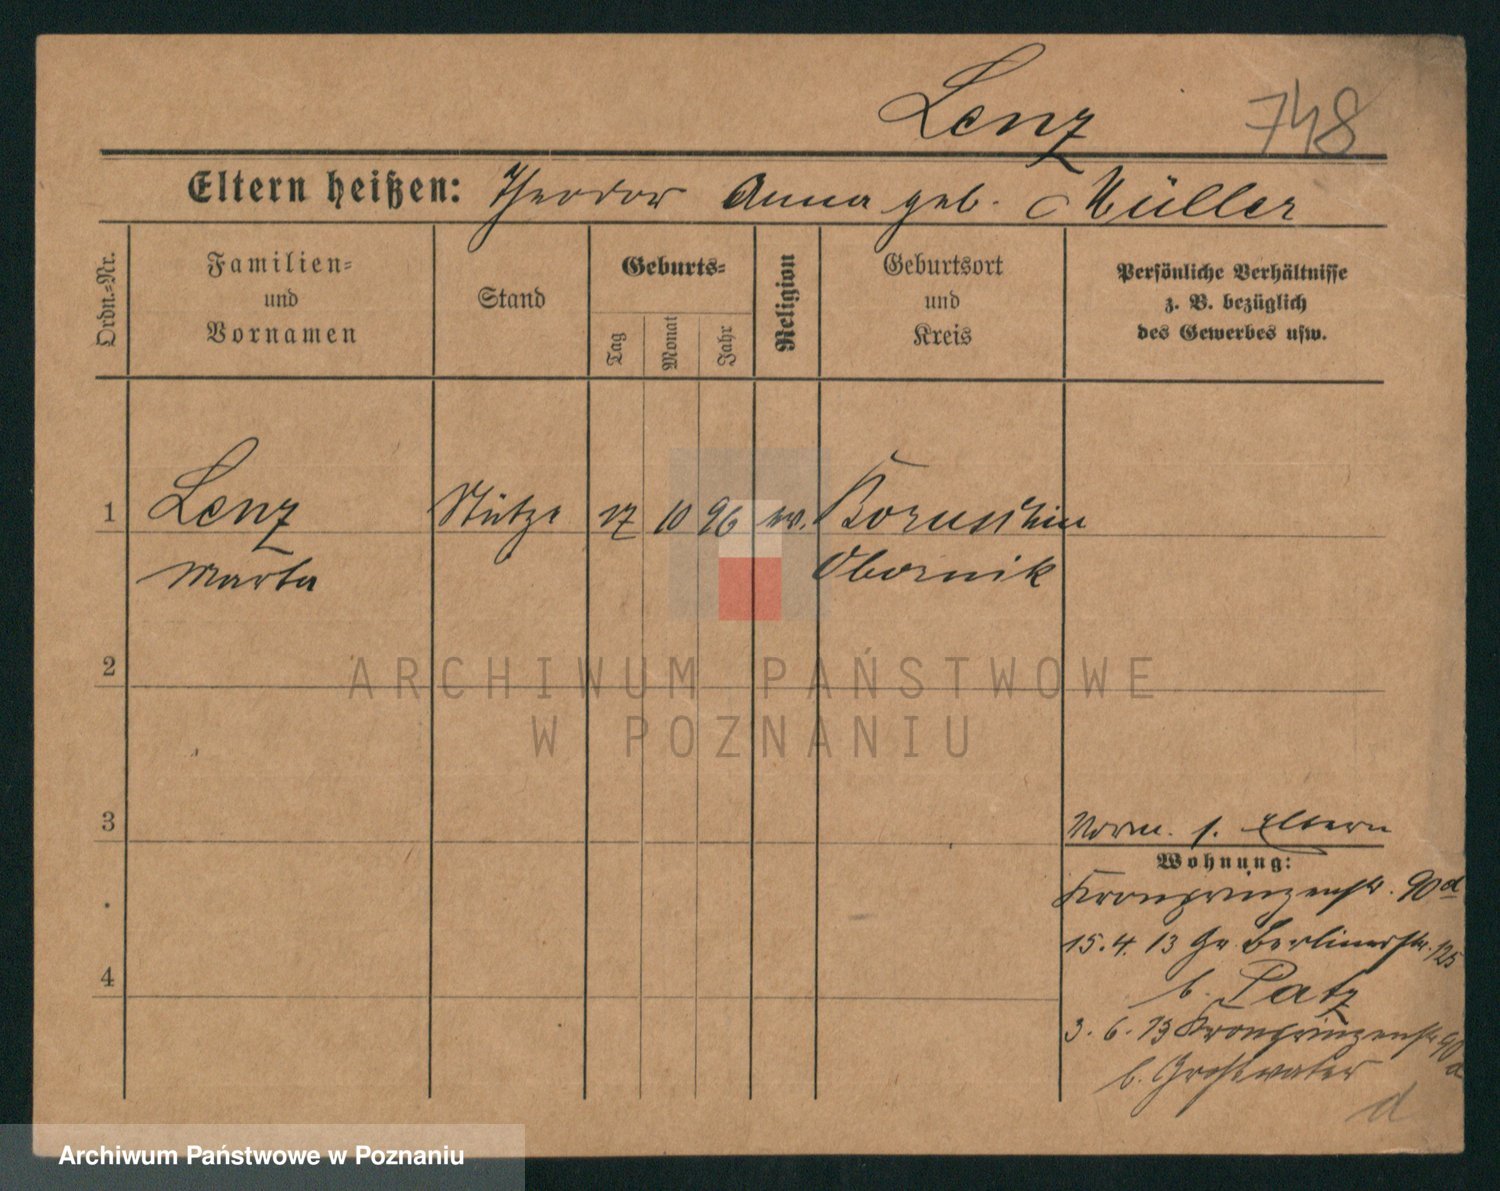 Lenz 748
Eltern heißen: Theodor Anna geb. Müller
Ordn.-Nr.
Familien-
und
Vornamen
Stand
Geburts-
Tag
Monat
Jahr
Religion
Geburtsort
und
Kreis
Persönliche Verhältnisse
z. B. bezüglich
des Gewerbes usw.
1 Lenz Stütze 17 10 96 ev.
Marta Obornik
2
ARCHIWUM PAŃSTWOWE
W POZNANIU
3
Vorm. s. Eltern
Wohnung:
Kronprinzenstr. 90d
15.4.13 Gr Berlinerstr. 125
b. Patz
4
3.6.13 Kronprinzenstr 90a
b. Großvater
d
Archiwum Państwowe w Poznaniu